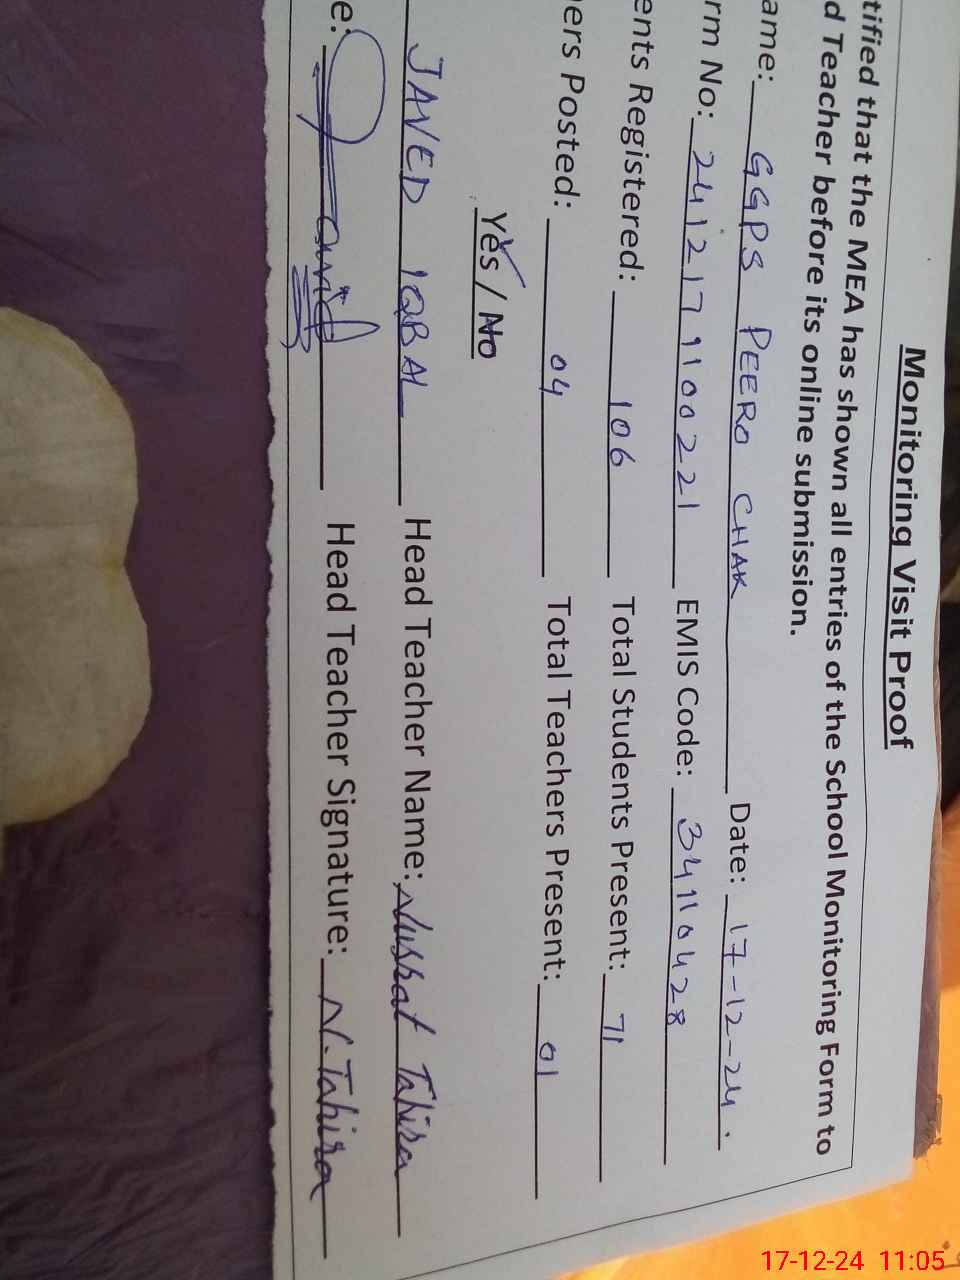 Monitoring Visit Proof
tified that the MEA has shown all entries of the School Monitoring Form to
d Teacher before its online submission.
ame: GGPS PEERO CHAK Date: 17-12-24.
rm No: 241217 9100221 EMIS Code: 34110428
ents Registered: 106 Total Students Present: 71
ers Posted: 04 Total Teachers Present: 01
Yes / No
JAVED IQBAL Head Teacher Name: Nusrat Tahira
e: Javid Head Teacher Signature: N. Tahira
17-12-24 11:05